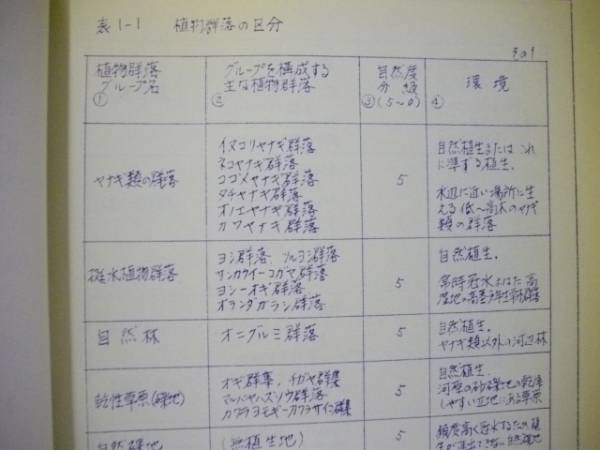 表1-1 植物群落の区分
その1
植物群落
グループ名
①
グループを構成する
主な植物群落
②
自然度
分級
③(5~0)
環境
④
ヤナギ類の群落
イヌコリヤナギ群落
ネコヤナギ群落
コゴメヤナギ群落
タチヤナギ群落
オノエヤナギ群落
カワヤナギ群落
5
自然植生またはこれ
に準ずる植生.
水辺に近い場所に生
える低~高木のヤナギ
類の群落
挺水植物群落
ヨシ群落、ツルヨシ群落
サンカクイーコガマ群落
ヨシーオギ群落
オランダガラシ群落
5
自然植生.
常時冠水または高
湿地の
自然林
オニグルミ群落
5
自然植生.
ヤナギ類以外の河辺林
乾性草原(礫地)
オギ群集、チガヤ群集
マルバヤハズソウ群落
カワラヨモギーカワラサイコ群集
5
自然植生
河原の砂礫地の乾燥
しやすい立地にある草原
自然礫地
(無植生地)
5
頻度高く冠水するため植